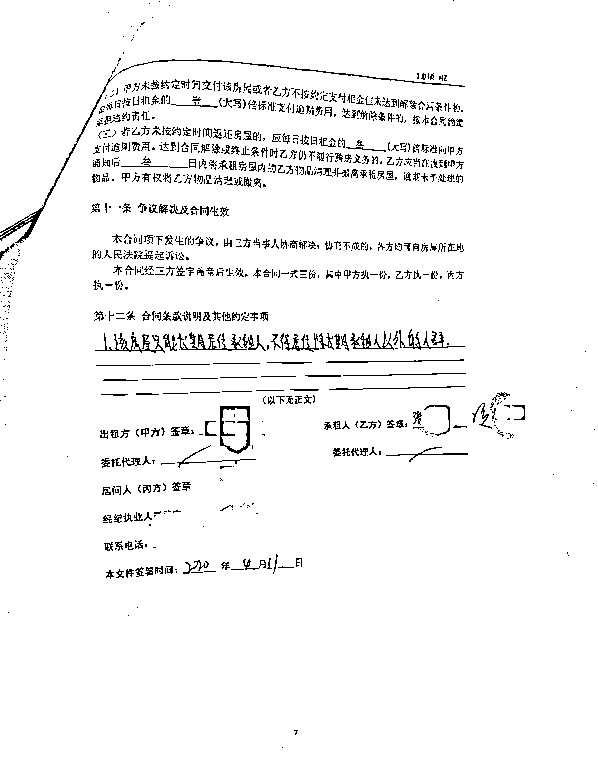 2018 HZ
(二) 甲方未按约定时间交付该房屋或者乙方不按约定支付租金但未达到解除合同条件的,
应每日按日租金的 叁 (大写) 倍标准支付逾期费用, 达到解除条件的, 按本合同约定
承担违约责任。
(三) 若乙方未按约定时间返还房屋的, 应每日按日租金的 叁 (大写) 倍标准向甲方
支付逾期费用。达到合同解除或终止条件时乙方仍不履行腾房义务的, 乙方应当在收到甲方
通知后 叁 日内将承租房屋内的乙方物品清理并搬离承租房屋, 逾期未予处理的
物品, 甲方有权将乙方物品清理或搬离。
第十一条 争议解决及合同生效
本合同项下发生的争议, 由三方当事人协商解决; 协商不成的, 各方均可向房屋所在地
的人民法院提起诉讼。
本合同经三方签字盖章后生效。本合同一式三份, 其中甲方执一份, 乙方执一份, 丙方
执一份。
第十二条 合同条款说明及其他约定事项
1.该房屋只能长期居住承租人,不得居住除长期承租人以外的人群.
(以下无正文)
出租方 (甲方) 签章:
承租人 (乙方) 签章:
委托代理人:
委托代理人:
居间人 (丙方) 签章
经纪执业人
联系电话:
本文件签署时间: 年 4 月 日
7